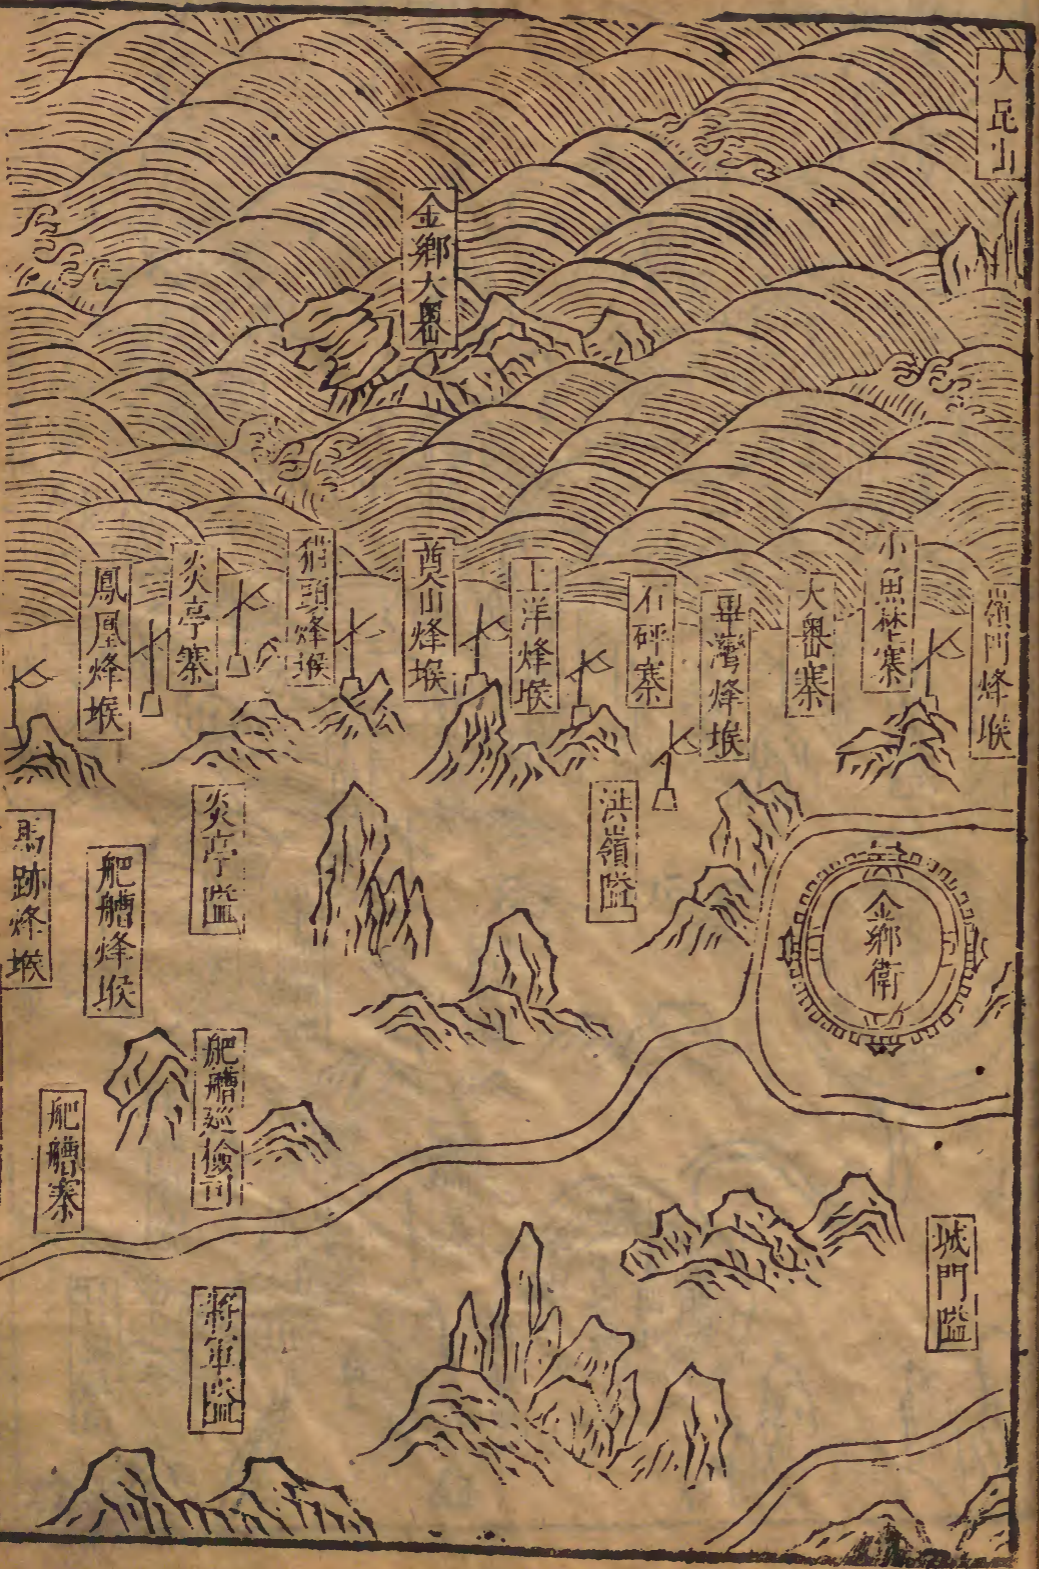 大昆山
金鄉大嶴
嶺門烽堠
小魚埜寨
大嶴寨
灣烽堠
石砰寨
上洋烽堠
山烽堠
頭烽堠
炎亭寨
鳳凰烽堠
金鄉衛
洪嶺隘
炎亭隘
舥艚烽堠
馬跡烽堠
舥艚巡檢司
舥艚寨
城門隘
將軍隘